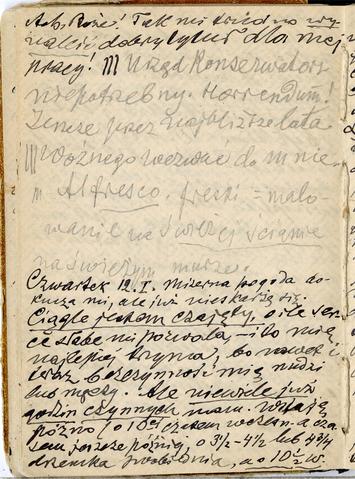 Ach, Boże! Tak mi trudno wy-
naleźć dobry tytuł dla mej
pracy! III Urząd Konserwatora
niepotrzebny. Horrendum!
Jeszcze przez najbliższe lata
Woźnego wezwać do mnie
Alfresco, freski = malo-
wanie na świeżej ścianie
na świeżym murze.
Czwartek 12.I. Mizerna pogoda do-
kucza mi, ale już nie skarżę się.
Ciągle jestem czajęty, o ile ser-
ce słabe mi pozwala, i to mię
najlepiej trzyma, bo nawet i
teraz bezczynność mię nudzi
lub męczy. Ale niewiele już
godzin czynnych mam. Wstaję
późno, o 10ej czasem wcześn. a cza-
sem jeszcze później, o 3½-4½ lub 4¾
drzemka , a o 10½ w.